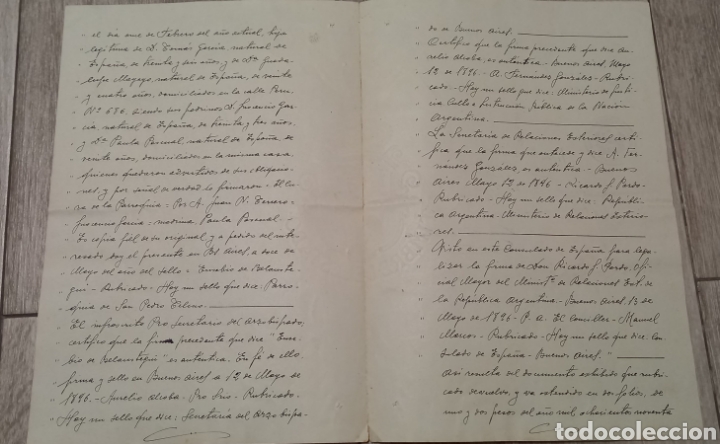 " el día once de Febrero del año actual, hija
" legítima de D. Tomás García, natural de
" España, de treinta y un años y de Dª Guada-
" lupe Mayayo, natural de España, de treinta
" y cuatro años, domiciliados en la calle Perú
" Nº 686. siendo sus padrinos D. Inocencio Gar-
" cía natural de España, de treinta y tres años,
" y Dª Paula Pascual, natural de España, de
" veinte años, domiciliados en la misma casa
" quienes quedaron advertidos de sus obligacio-
" nes, y por señal de verdad lo firmaron - El Cu-
" ra de la Parroquia = Por A. Juan N. Terrero-
" Inocencio García = madrina Paula Pascual -
" Es copia fiel de su original, y a pedido del inte-
" resado doy el presente en Bs Aires, a doce de
" Mayo del año del sello - Eusebio de Belauste-
" gui - Rubricado - Hay un sello que dice: Parro-
" quia de San Pedro Telmo.
" El infrascrito Pro Secretario del Arzobispado,
" certifico que la firma precedente que dice "Euse-
" bio de Belaustegui" es auténtica. En fe de ello
" firma y sello en Buenos Aires a 12 de Mayo de
" 1896. - Aurelio Alcoba - Pro Srio - Rubricado -
" Hay un sello que dice: Secretaría del Arzobispa-
" do de Buenos Aires.
" Certifico que la firma precedente que dice Au-
" relio Alcoba, es auténtica - Buenos Aires Mayo
" 12 de 1896. - A. Fernández González - Rubri-
" cado - Hay un sello que dice: Ministerio de Justi-
" cia Culto e Instrucción Pública de la Nación
" Argentina.
" La Secretaría de Relaciones Exteriores certi-
" fica que la firma que antecede y dice A. Fer-
" nández González es auténtica - Buenos
" Aires Mayo 12 de 1896 - Ricardo J. Pardo -
" Rubricado - Hay un sello que dice: Repúbli-
" ca Argentina - Ministerio de Relaciones Exterio-
" res.
" Visto en este Consulado de España para lega-
" lizar la firma de Don Ricardo J. Pardo, Ofi-
" cial Mayor del Ministº de Relaciones Ext. de
" la República Argentina - Buenos Aires 13 de
" Mayo de 1896 - P. A. El Canciller - Manuel
" Marcos - Rubricado - Hay un sello que dice: Con-
" sulado de España - Buenos Aires."
Así resulta del documento exhibido que rubri-
cado devuelvo, y va extendido en dos folios, de
uno y dos pesos del año mil ochocientos noventa
todocoleccion